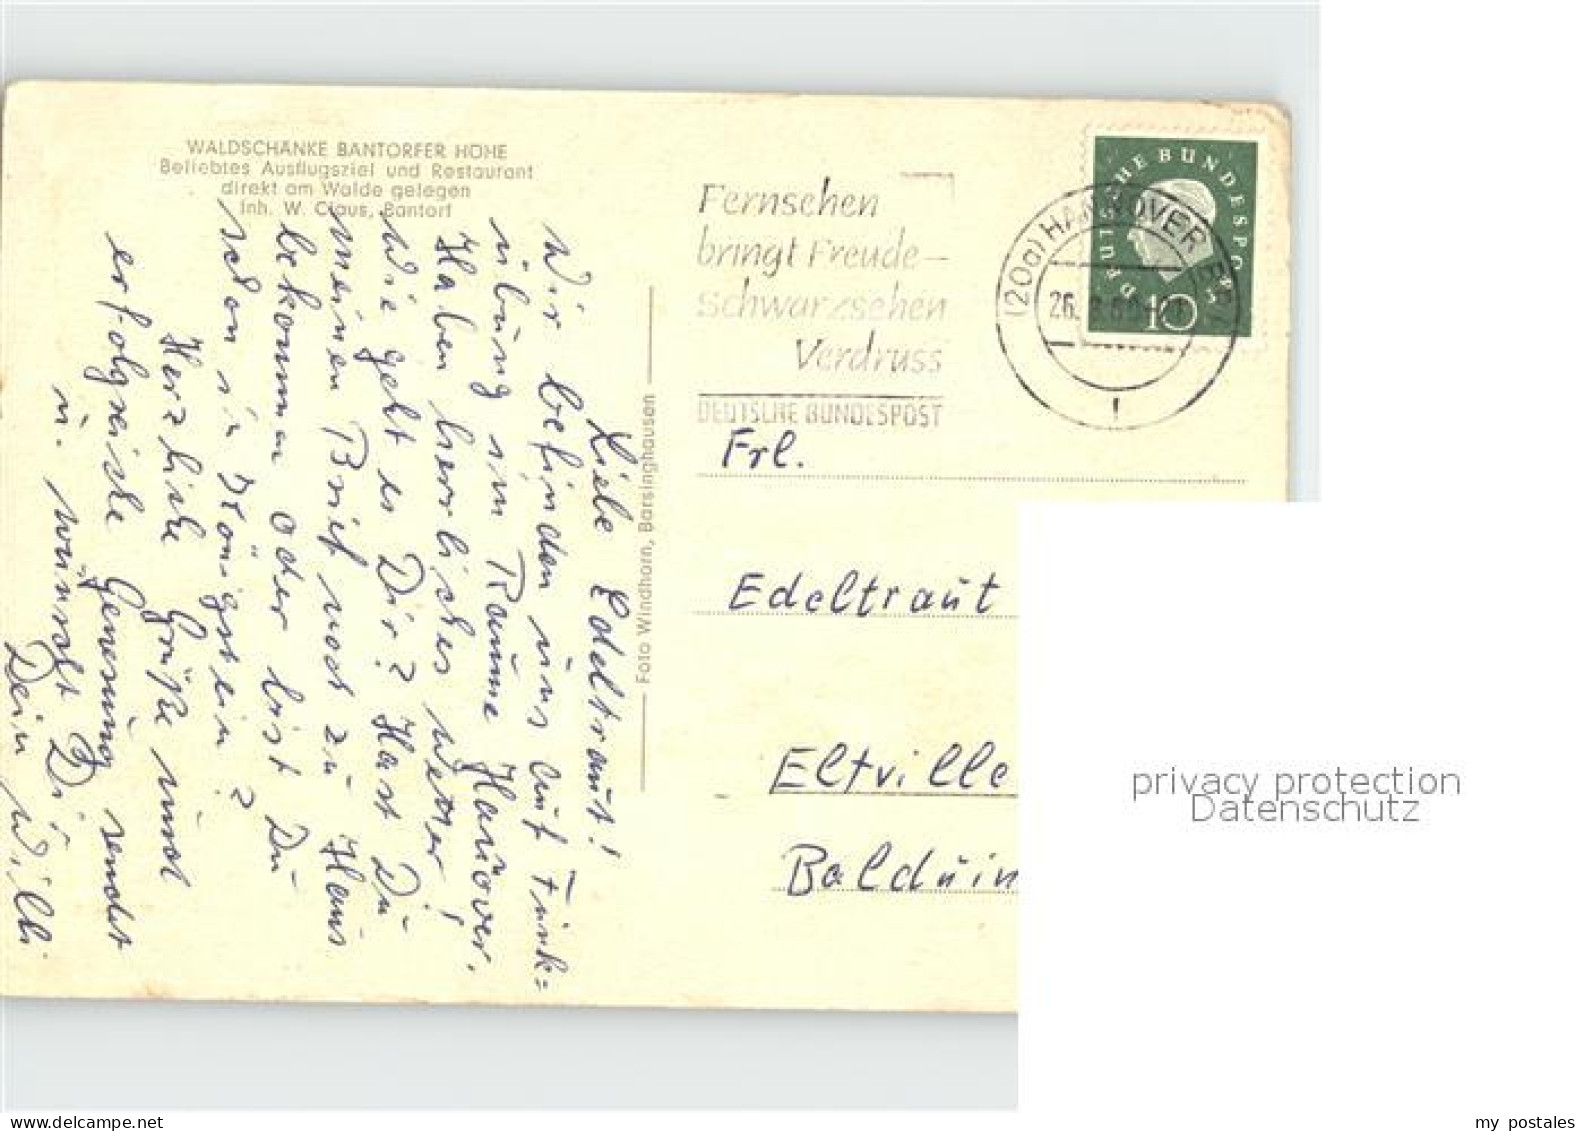 WALDSCHÄNKE BANTORFER HÖHE
Beliebtes Ausflugsziel und Restaurant
direkt am Walde gelegen
Inh. W. Claus, Bantorf
Liebe Edeltraut!
Wir befinden uns auf Funk=
übung im Raume Hannover.
Haben herrliches Wetter!
Wie geht es Dir? Hast Du
meinen Brief noch zu Haus
bekommen oder bist Du
schon in Königstein?
Herzliche Grüße und
erfolgreiche Genesung sendet
u. wünscht Dir
Dein Willi
Foto Windhorn, Barsinghausen
Fernsehen
bringt Freude-
schwarzsehen
Verdruss
DEUTSCHE BUNDESPOST
(20a) HANNOVER
26.
DEUTSCHE BUNDESPOST
10
Frl.
Edeltraut
Eltville
Balduin
privacy protection
Datenschutz
my postales